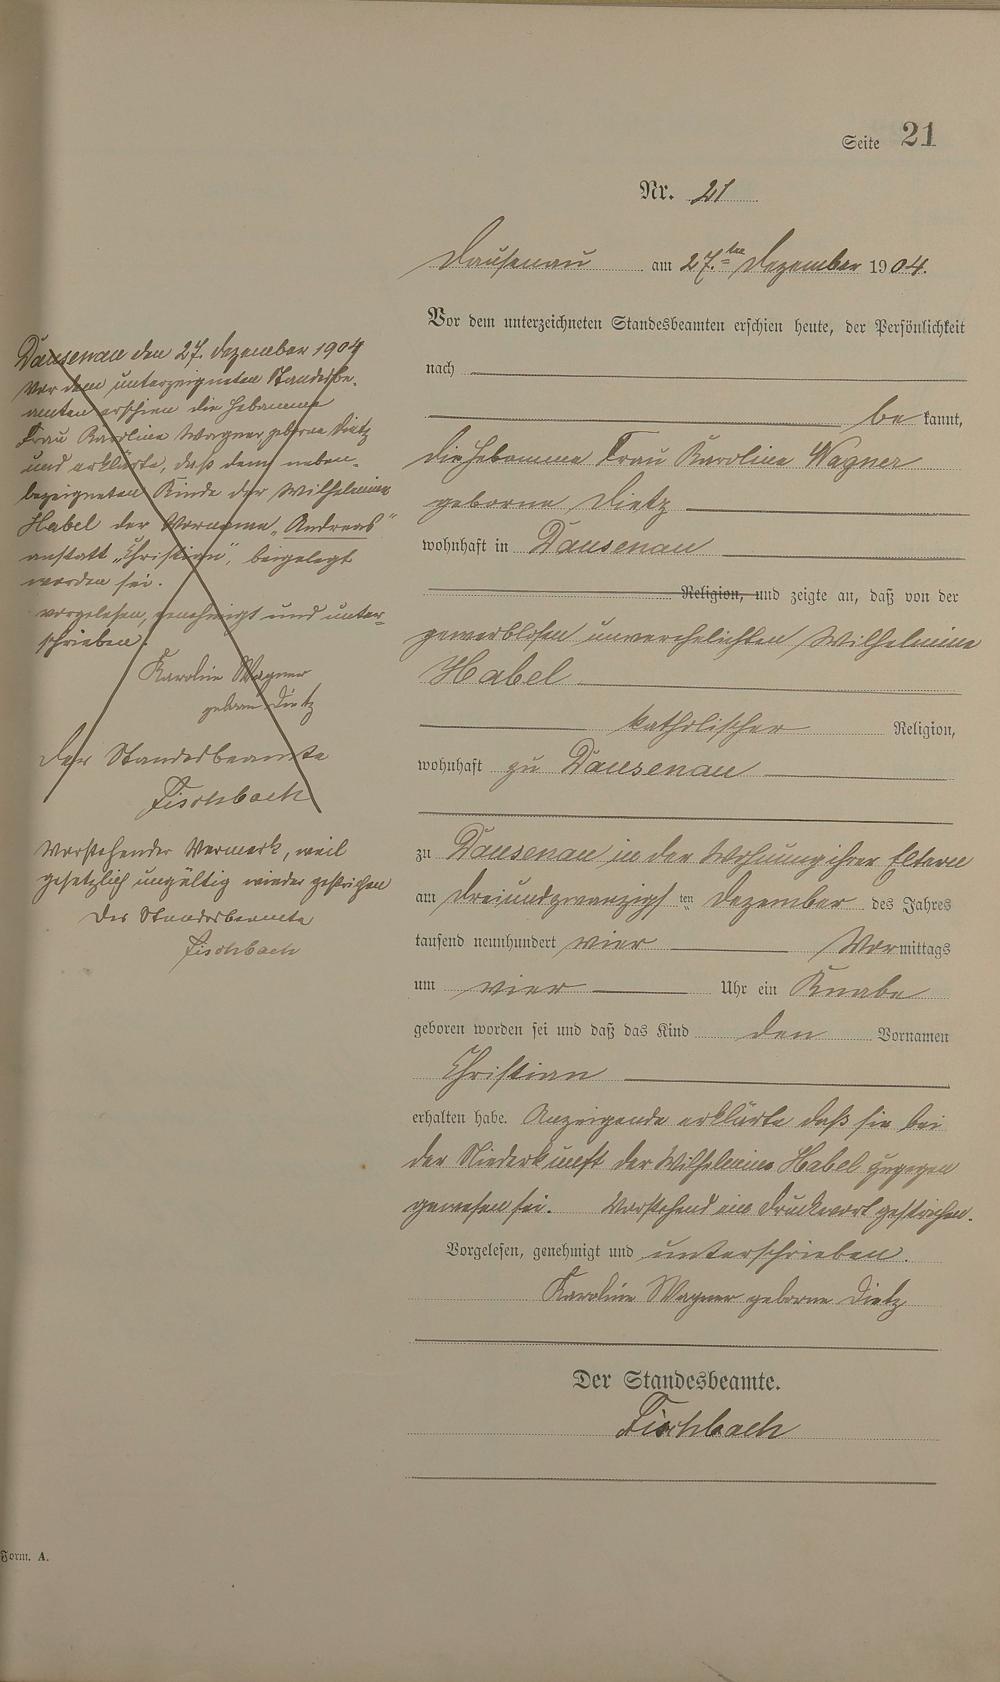 Seite 21
Nr. 21
Dausenau am 27.ten Dezember 1904.
Vor dem unterzeichneten Standesbeamten erschien heute, der Persönlichkeit
nach
bekannt,
die Hebamme Frau Karoline Wagner
geborne Dietz
wohnhaft in Dausenau
Religion, und zeigte an, daß von der
gewerblosen unverehelichten Wilhelmine
Habel
katholischer Religion,
wohnhaft zu Dausenau
zu Dausenau in der Wohnung ihrer Eltern
am dreiundzwanzigsten Dezember des Jahres
tausend neunhundert vier Vormittags
um vier Uhr ein Knabe
geboren worden sei und daß das Kind den Vornamen
Christian
erhalten habe. Anzeigende erklärte daß sie bei
der Niederkunft der Wilhelmine Habel zugegen
gewesen sei. Vorstehend ein Druckwort gestrichen.
Vorgelesen, genehmigt und unterschrieben.
Karoline Wagner geborne Dietz
Der Standesbeamte.
Fischbach
Dausenau den 27. Dezember 1904
Vor dem unterzeigneten Standesbe-
amten erschien die Hebamme
Frau Karoline Wagner geborne Dietz
und erklärte, daß dem neben-
bezeigneten Kinde der Wilhelmine
Habel der Vorname „Andreas"
anstatt „Christian", beigelegt
worden sei.
vorgelesen, genehmigt und unter-
schrieben.
Karoline Wagner
geborne Dietz
Der Standesbeamte
Fischbach
Vorstehender Vermerk, weil
gesetzlich ungültig wieder gestrichen
Der Standesbeamte
Fischbach
Form. A.